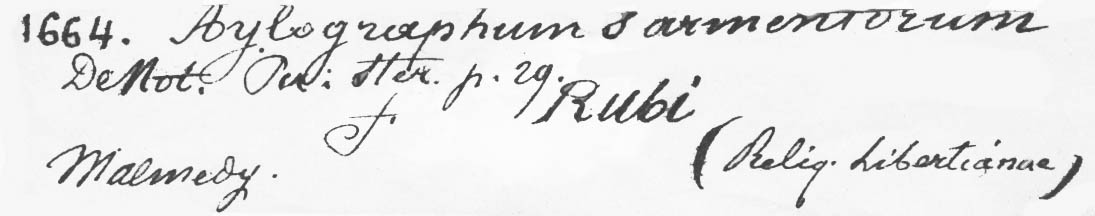 1664. Aylographum sarmentorum
De Not. Pir. Ister. p. 29.
f Rubi
Malmedy. (Reliq. Libertianae)